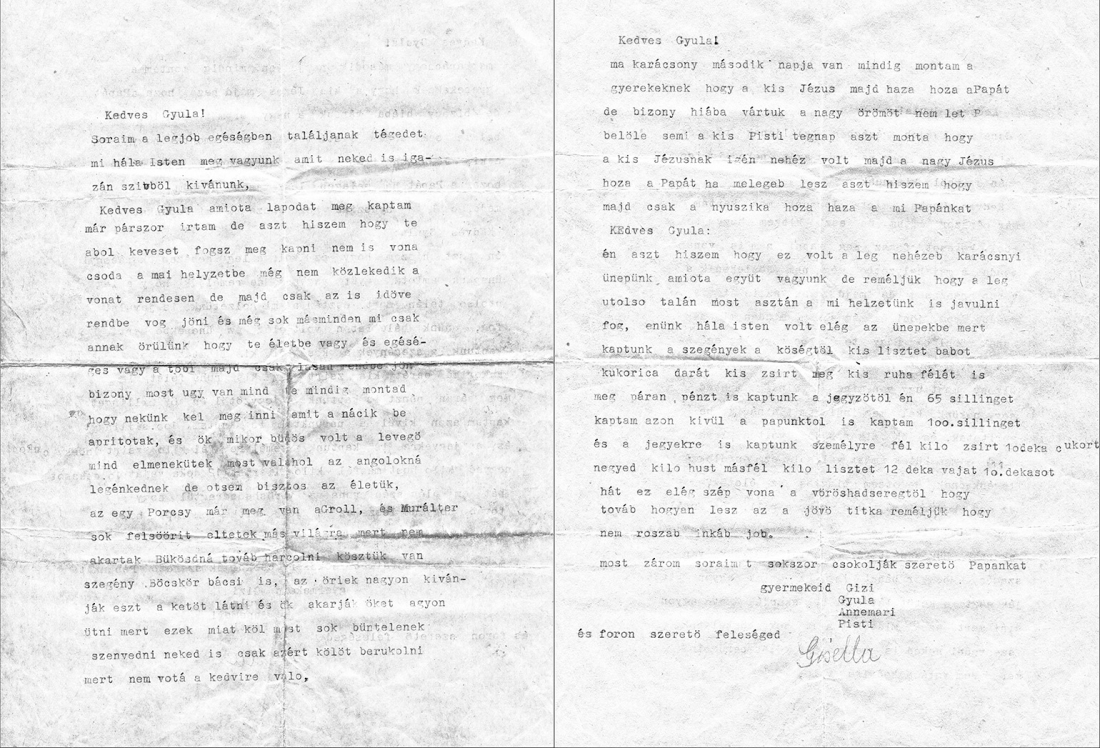 Kedves Gyula!
Soraim a legjob egéségben találjanak tégedet
mi hála Isten meg vagyunk amit neked is iga-
zán szivböl kivánunk,
Kedves Gyula amiota lapodat meg kaptam
már párszor irtam de aszt hiszem hogy te
abol keveset fogsz meg kapni nem is vona
csoda a mai helyzetbe még nem közlekedik a
vonat rendesen de majd csak az is idöve
rendbe vog jöni és még sok másminden mi csak
annak örülünk hogy te életbe vagy és egésé-
ges vagy a töbi majd csak rendbe jön
bizony most ugy van mind te mindig montad
hogy nekünk kel meg inni amit a nácik be
apritotak, és ök mikor büdös volt a levegö
mind elmenekütek most valahol az angolokná
legénkednek de otsem bisztos az életük,
az egy Porcsy már meg van aGroll, és Murálter
sok felsöörit eltetek más világra mert nem
akartak Bükösdná továb harcolni kösztük van
szegény Böcskör bácsi is, az öriek nagyon kiván-
ják eszt a ketöt látni és ök akarják öket agyon
ütni mert ezek miat köl most sok büntelenek
szenvedni neked is csak azért kölöt berukolni
mert nem votá a kedvire valo,
Kedves Gyula!
ma karácsony második napja van mindig montam a
gyerekeknek hogy a kis Jézus majd haza hoza aPapát
de bizony hiába vártuk a nagy örömöt nem let P
belöle semi a kis Pisti tegnap aszt monta hogy
a kis Jézusnak igén nehéz volt majd a nagy Jézus
hoza a Papát ha melegeb lesz aszt hiszem hogy
majd csak a nyuszika hoza haza a mi Papánkat
KEdves Gyula:
én aszt hiszem hogy ez volt a leg nehézeb karácsnyi
ünepünk amiota együt vagyunk de reméljük hogy a leg
utolso talán most asztán a mi helzetünk is javulni
fog, enünk hála isten volt elég az ünepekbe mert
kaptunk a szegények a köségtöl kis lisztet babot
kukorica darát kis zsirt meg kis ruha félét is
meg páran pénzt is kaptunk a jegyzötöl én 65 sillinget
kaptam azon kivül a papunktol is kaptam 1oo.sillinget
és a jegyekre is kaptunk személyre fél kilo zsirt 1odeka cukort
negyed kilo hust másfél kilo lisztet 12 deka vajat 1o.dekasot
hát ez elég szép vona a vöröshadseregtöl hogy
továb hogyen lesz az a jövö titka reméljük hogy
nem roszab inkáb job.
most zárom soraim t sokszor csokolják szeretö Papankat
gyermekeid Gizi
Gyula
Annemari
Pisti
és foron szeretö feleséged
Gisella